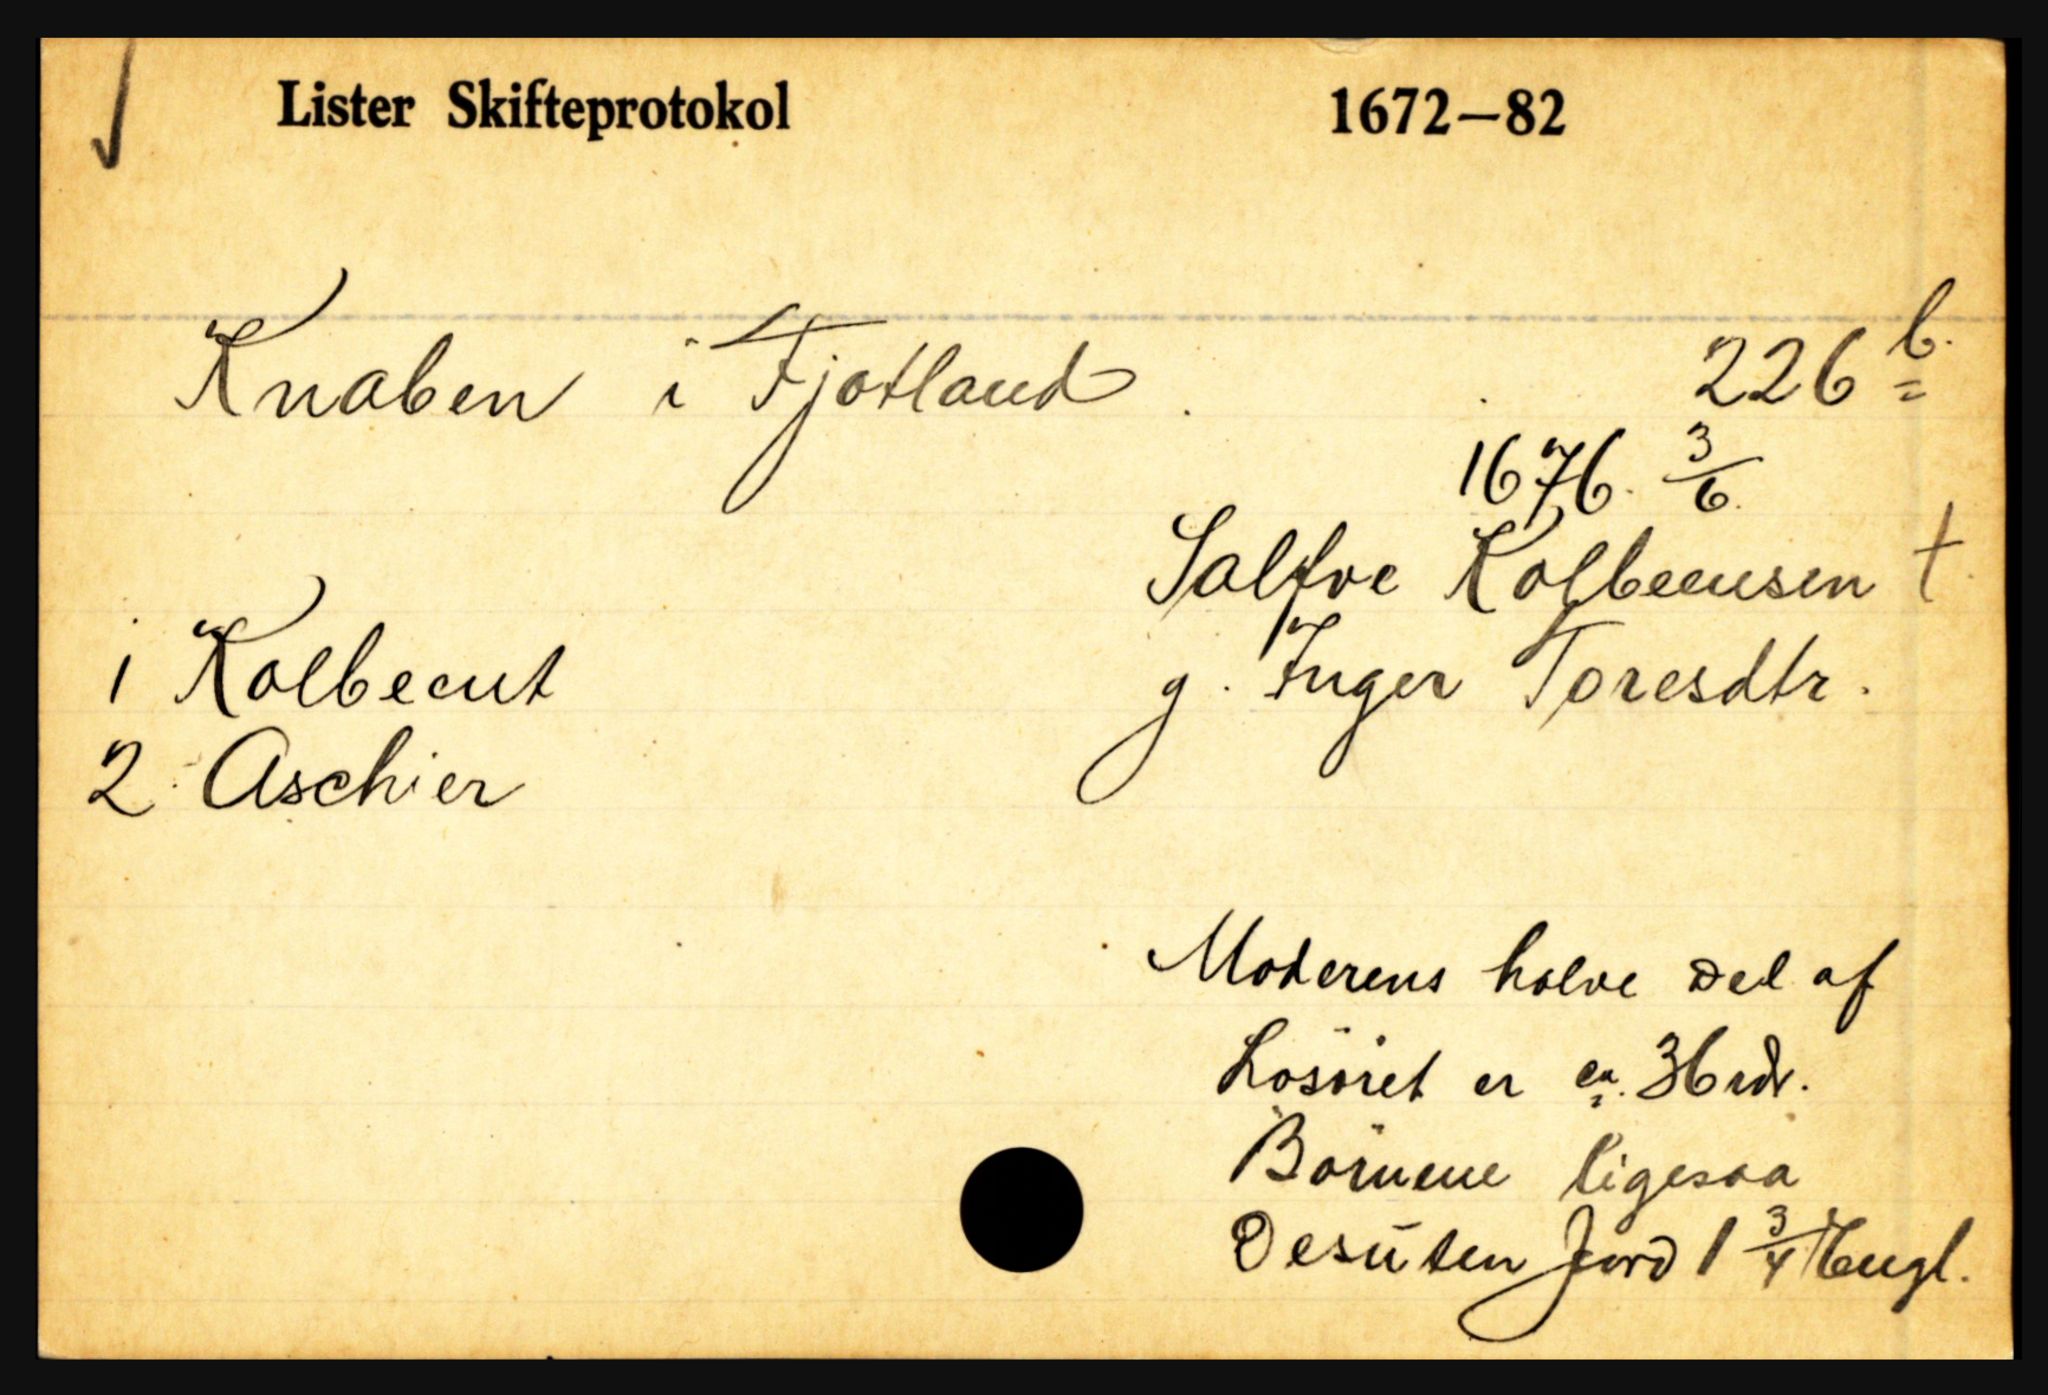 Lister Skifteprotokol 1672–82
Knaben i Fjotland. 226 b.
1676. 3/6.
Salfve Kolbeensen †.
1 Kolbeent g. Inger Toresdtr.
2. Aschier
Moderens halve Del af
Løsøret er ca. 36 rdr.
Børnene ligesaa
Desuten Jord 1 3/4 Engl.